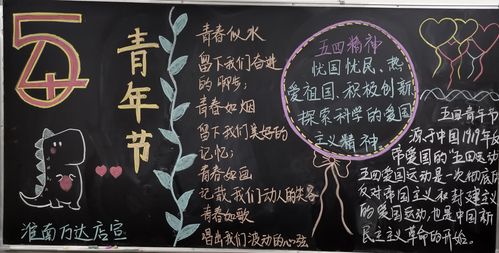 5
4
青年节
淮南万达店宣
青春似水
留下我们奋进
的脚步；
青春如烟
留下我们美好的
记忆；
青春如画
记载我们动人的笑容
青春如歌
唱出我们波动的心弦
五四精神
忧国忧民、热
爱祖国、积极创新
探索科学的爱国
主义精神
五四青年节
源于中国1919年反
帝爱国的“五四运动
五四爱国运动是一次彻底的
反对帝国主义和封建主义
的爱国运动，也是中国新
民主主义革命的开始。